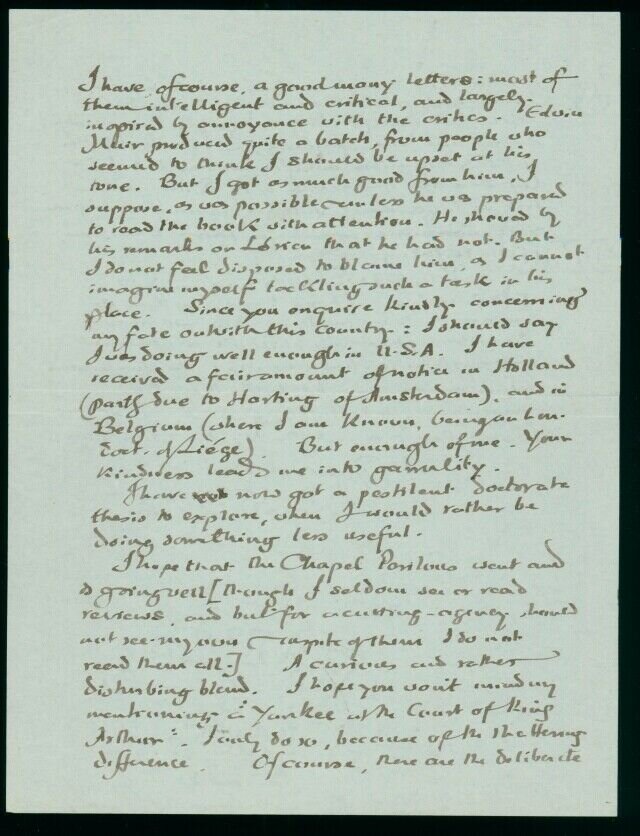 I have, of course, a good many letters: most of
them intelligent and critical, and largely
inspired by annoyance with the critics. Edwin
Muir produced quite a batch, from people who
seemed to think I should be upset at his
tone. But I got as much good from him, I
suppose, as was possible – unless he was prepared
to read the book with attention. He showed by
his remarks on Lórien that he had not. But
I do not feel disposed to blame him, as I cannot
imagine myself tackling such a task in his
place. Since you enquire kindly concerning
my fate outwith this country: I should say
I was doing well enough in U.S.A. I have
received a fair amount of notice in Holland
(partly due to Harting of Amsterdam), and in
Belgium (where I am known, being an hon.
doct. of Liége). But enough of me. Your
kindness leads me into garrulity.
I have now got a pestilent doctorate
thesis to explore, when I would rather be
doing something less useful.
I hope that the Chapel Perilous went and
is going well [though I seldom see or read
reviews, and but for a cutting-agency should
not see my own – in spite of them I do not
read them all.] A curious and rather
disturbing blend. I hope you won't mind my
mentioning 'a Yankee at the Court of King
Arthur'. I only do so, because of the
difference. Of course, there are the deliberate